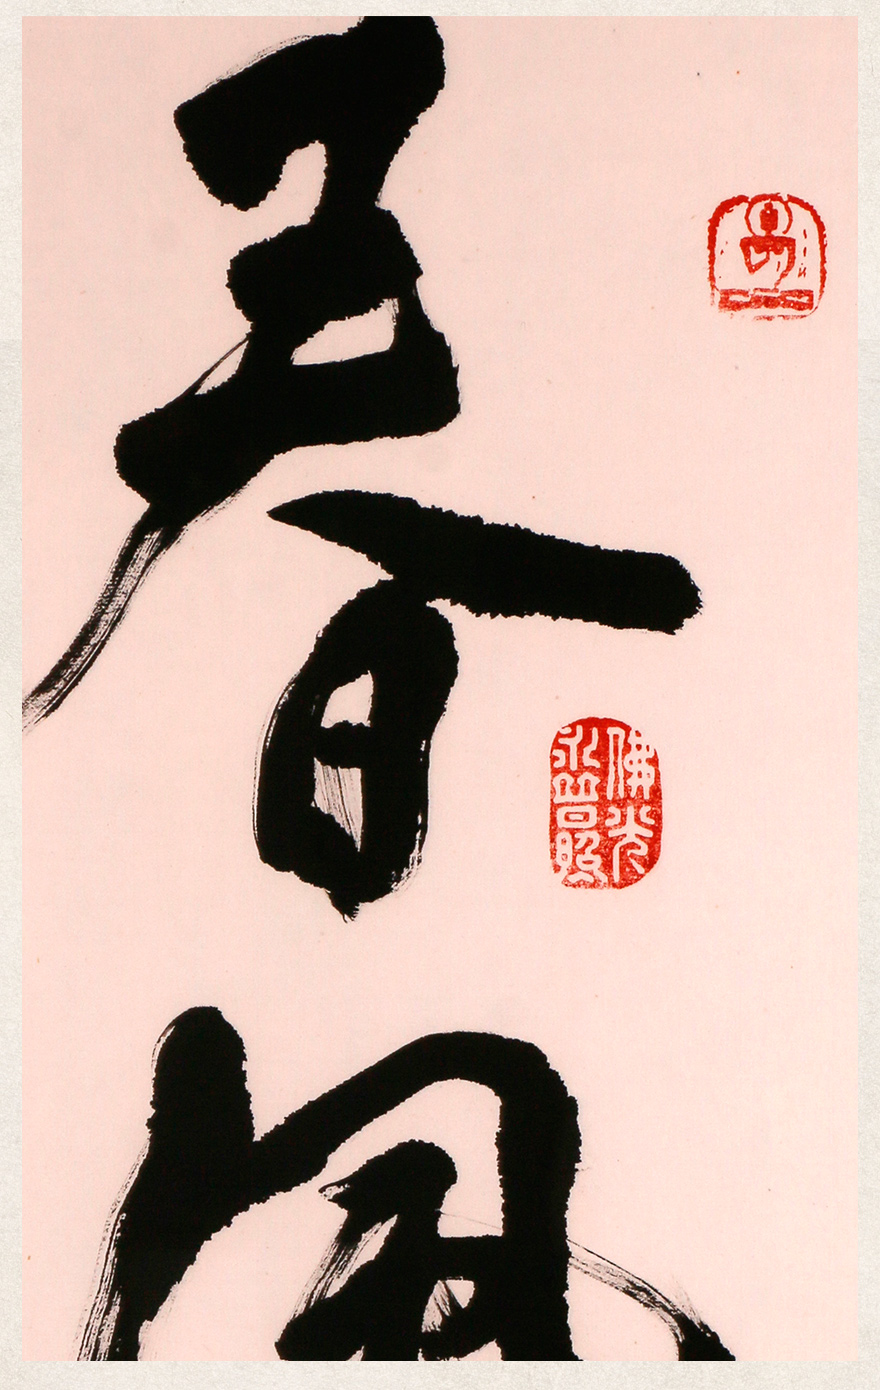 春風
佛光
永普照